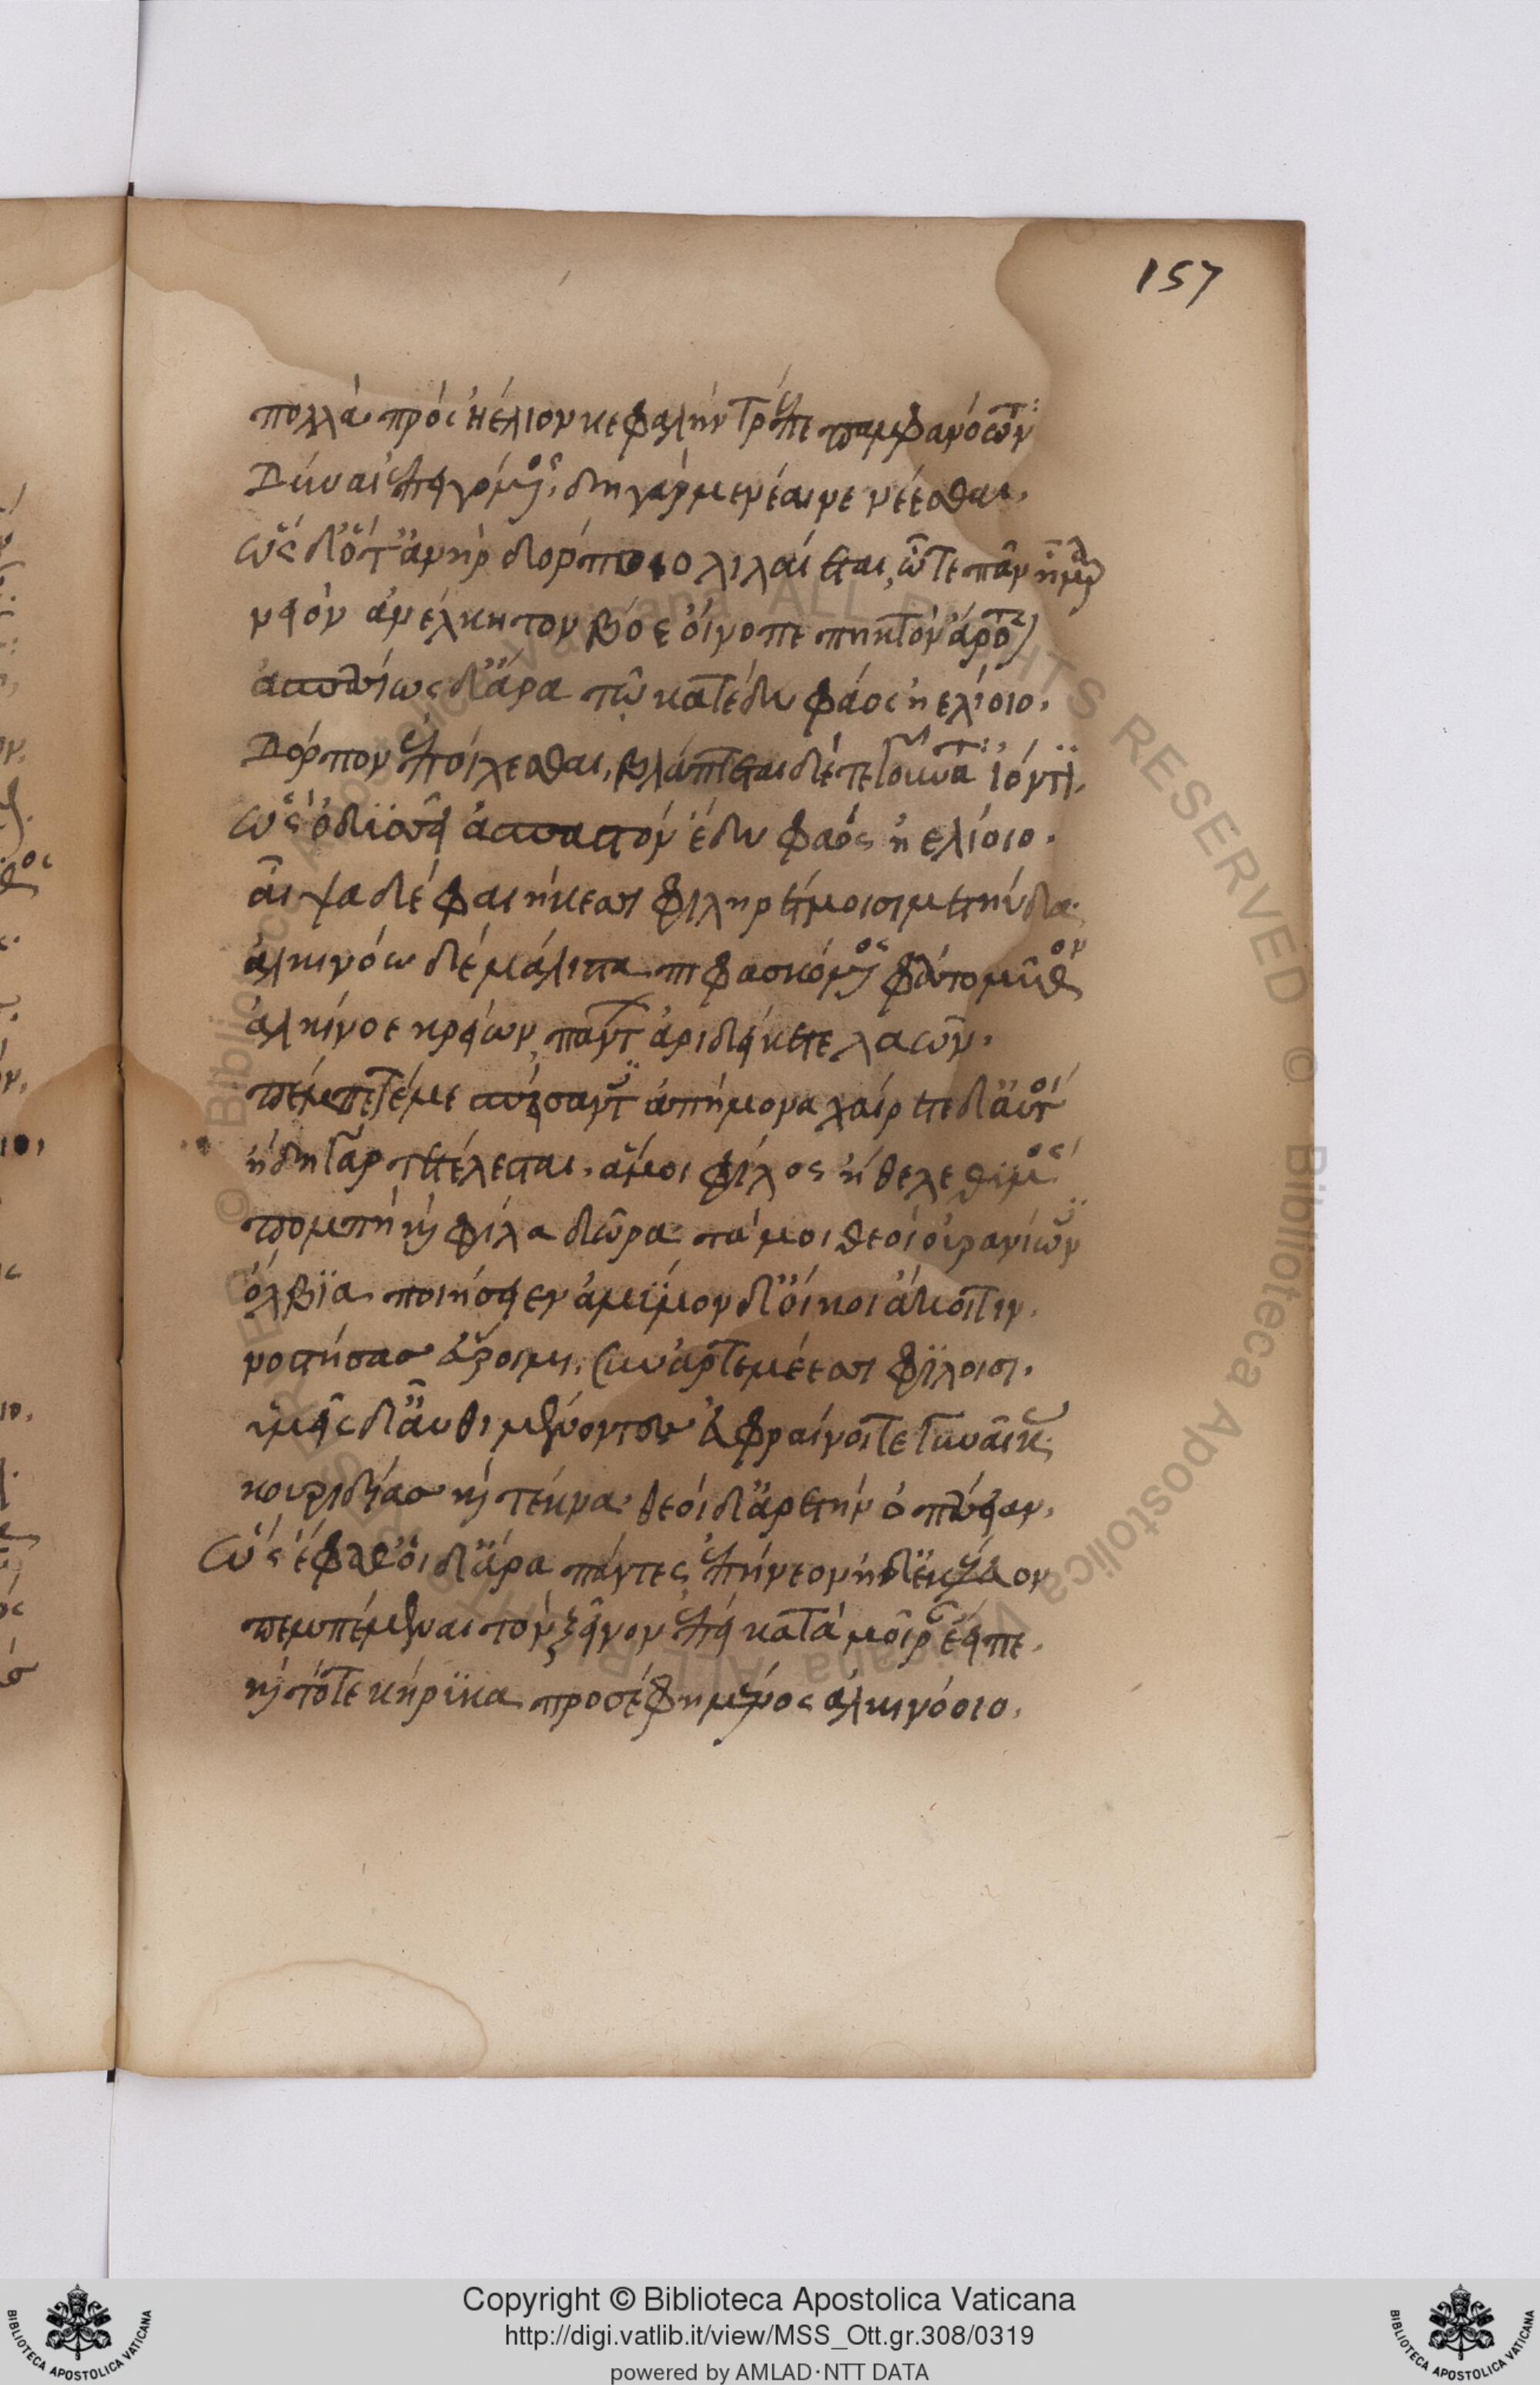 157
πολλὰ πρὸς ἠέλιον κεφαλὴν τρέπε παμφανόωντα
δῦναι ἐπειγόμενος· δὴ γὰρ μενέαινε νέεσθαι.
ὡς δ' ὅτ' ἀνὴρ δόρποιο λιλαίεται, ᾧτε πανῆμαρ
νειὸν ἀνέλκητον βόε οἴνοπε πηκτὸν ἄροτρον
ἀσπασίως δ' ἄρα τῷ κατέδυ φάος ἠελίοιο.
δόρπον ἐποίχεσθαι, βλάπτεται δέ τε γούνατ' ἰόντι.
ὣς ὀδυσεῖ ἀσπαστὸν ἔδυ φάος ἠελίοιο.
αἶψα δὲ φαιήκεσσι φιληρέτμοισι μετηύδα·
ἀλκινόω δὲ μάλιστα πιφασκόμενος φάτο μῦθον
ἀλκίνοε κρεῖον, πάντων ἀριδείκετε λαῶν.
πέμπετέ με σπείσαντες ἀπήμονα χαίρετε δ' αὐτοί
ἤδη γὰρ τετέλεσται, ἅ μοι φίλος ἤθελε θυμός
πομπὴ καὶ φίλα δῶρα· τά μοι θεοὶ οὐρανίωνες
ὄλβια ποιήσειεν ἀμύμονα δ' οἴκοι ἄκοιτιν.
νοστήσας εὕροιμι, σὺν ἀρτεμέεσσι φίλοισι.
ὑμεῖς δ' αὖθι μένοντες εὐφραίνοιτε γυναῖκας
κουριδίας καὶ τέκνα· θεοὶ δ' ἀρετὴν ὀπάσειαν.
ὣς ἔφαθ' οἱ δ' ἄρα πάντες ἐπήνεον ἠδ' ἐκέλευον
πεμπέμεναι τὸν ξεῖνον ἐπεὶ κατὰ μοῖραν ἔειπε.
καὶ τότε κήρυκα προσέφη μένος ἀλκινόοιο.
Copyright © Biblioteca Apostolica Vaticana
http://digi.vatlib.it/view/MSS_Ott.gr.308/0319
powered by AMLAD·NTT DATA